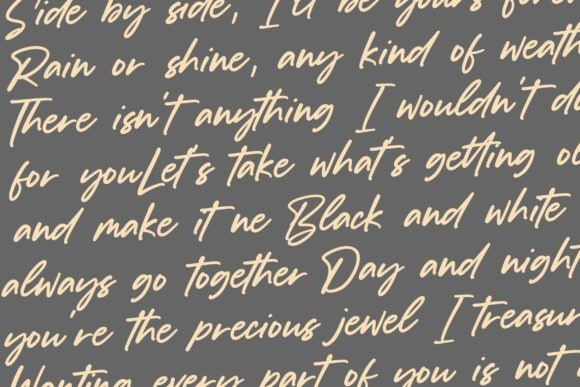 Side by side, I'll be yours forev
Rain or shine, any kind of weath
There isn't anything I wouldn't d
for youLet's take what's getting ol
and make it ne Black and white
always go together Day and night
you're the precious jewel I treasur
Wanting every part of you is not